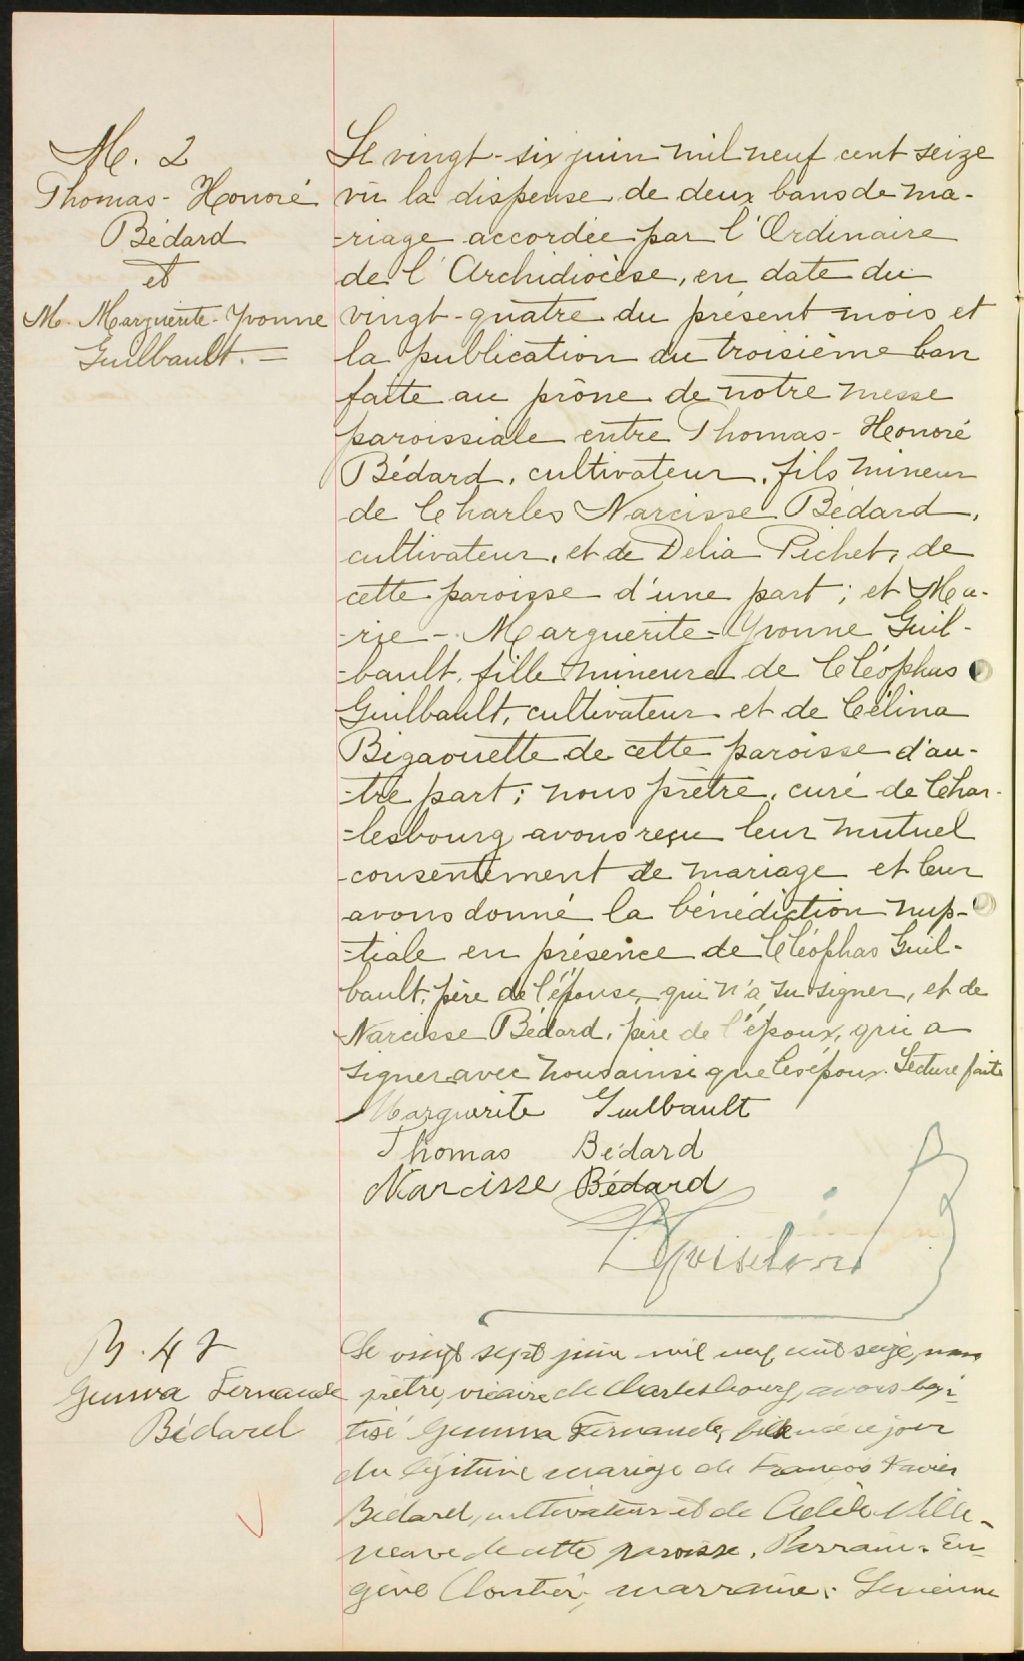 M. 2
Thomas-Honoré
Bédard
et
M. Marguerite-Yvonne
Guilbault. =
Le vingt-six juin mil neuf cent seize
vu la dispense de deux bans de ma-
-riage accordée par l'Ordinaire
de l'Archidiocèse, en date du
vingt-quatre du présent mois et
la publication du troisième ban
faite au prône de notre messe
paroissiale entre Thomas-Honoré
Bédard, cultivateur, fils mineur
de Charles Narcisse Bédard,
cultivateur, et de Delia Pichet, de
cette paroisse d'une part; et Ma-
-rie-Marguerite-Yvonne Guil-
-bault, fille mineure de Cléophas
Guilbault, cultivateur et de Célina
Bigaouette de cette paroisse d'au-
-tre part; nous prêtre, curé de Char-
-lesbourg avons reçu leur mutuel
consentement de mariage et leur
avons donné la bénédiction nup-
-tiale en présence de Cléophas Guil-
bault, père de l'épouse, qui n'a su signer, et de
Narcisse Bédard, père de l'époux, qui a
signer avec nous ainsi que les époux. Lecture faite
Marguerite Guilbault
Thomas Bédard
Narcisse Bédard
B. 47
Gemma Fernande
Bédard
Le vingt sept juin mil neuf cent seize, nous
prêtre, vicaire de Charlesbourg, avons bap-
tisé Gemma Fernande, née ce jour
du légitime mariage de François Xavier
Bédard, cultivateur et de Adèle Ville-
neuve de cette paroisse. Parrain: Eu-
gène Cloutier, marraine: Lucienne